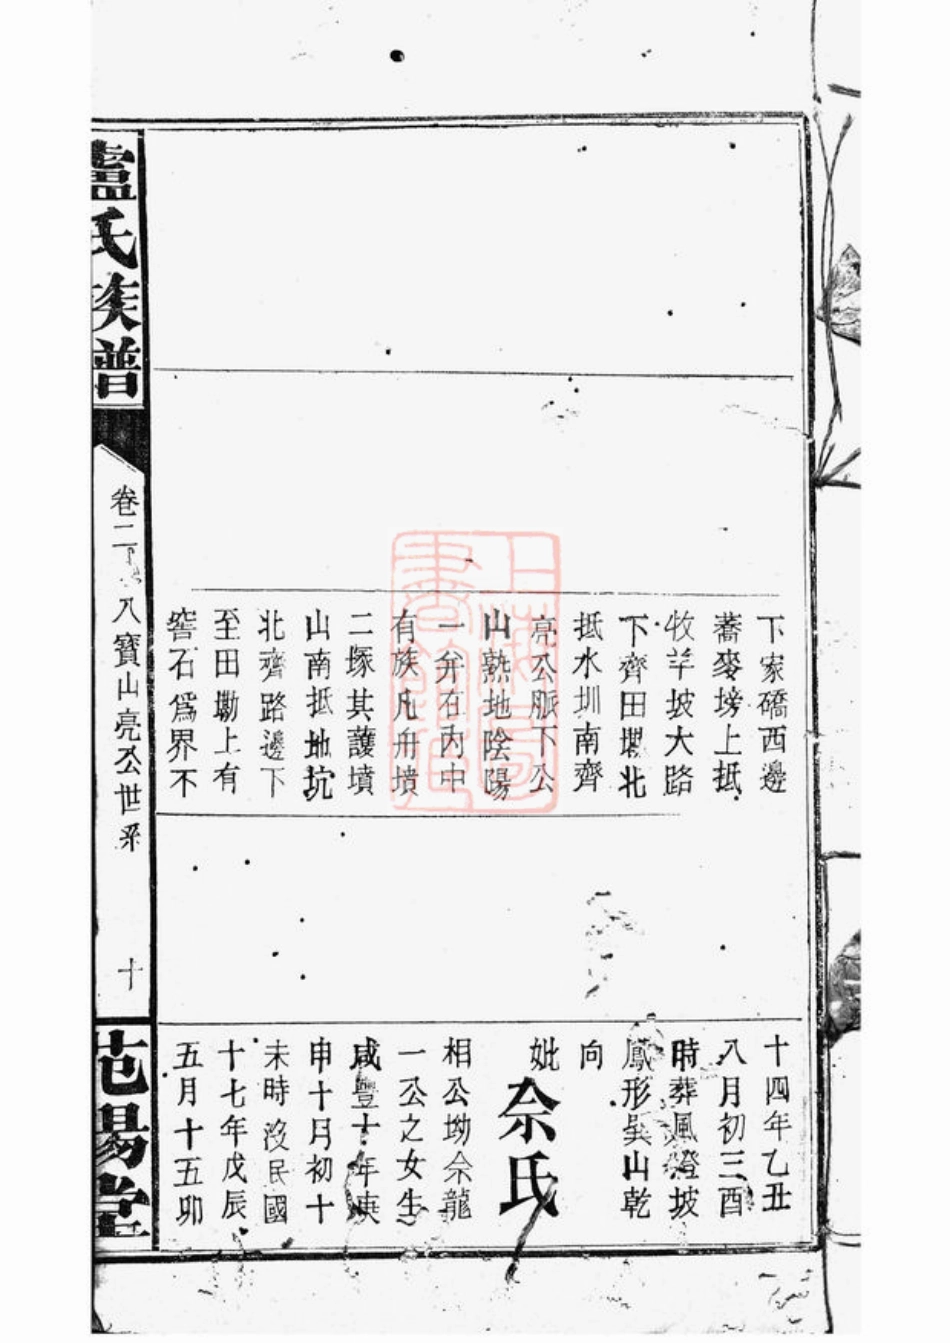 下家硚西邊
蕎麥塝上抵
牧羊坡大路
下齊田墈北
抵水圳南齊
亮公脈下公
山熟地陰陽
一弁石內中
有族凡舟墳
二塚其護墳
山南抵地坑
北齊路邊下
至田墈上有
窖石爲界不
十四年乙丑
八月初三酉
時葬風澄坡
鳳形吳山乾
向
妣佘氏
相公坳佘龍
一公之女生
咸豐十年庚
申十月初十
未時沒民國
十七年戊辰
五月十五卯
盧氏族譜
卷二下
八寶山亮公世系
十
范陽堂